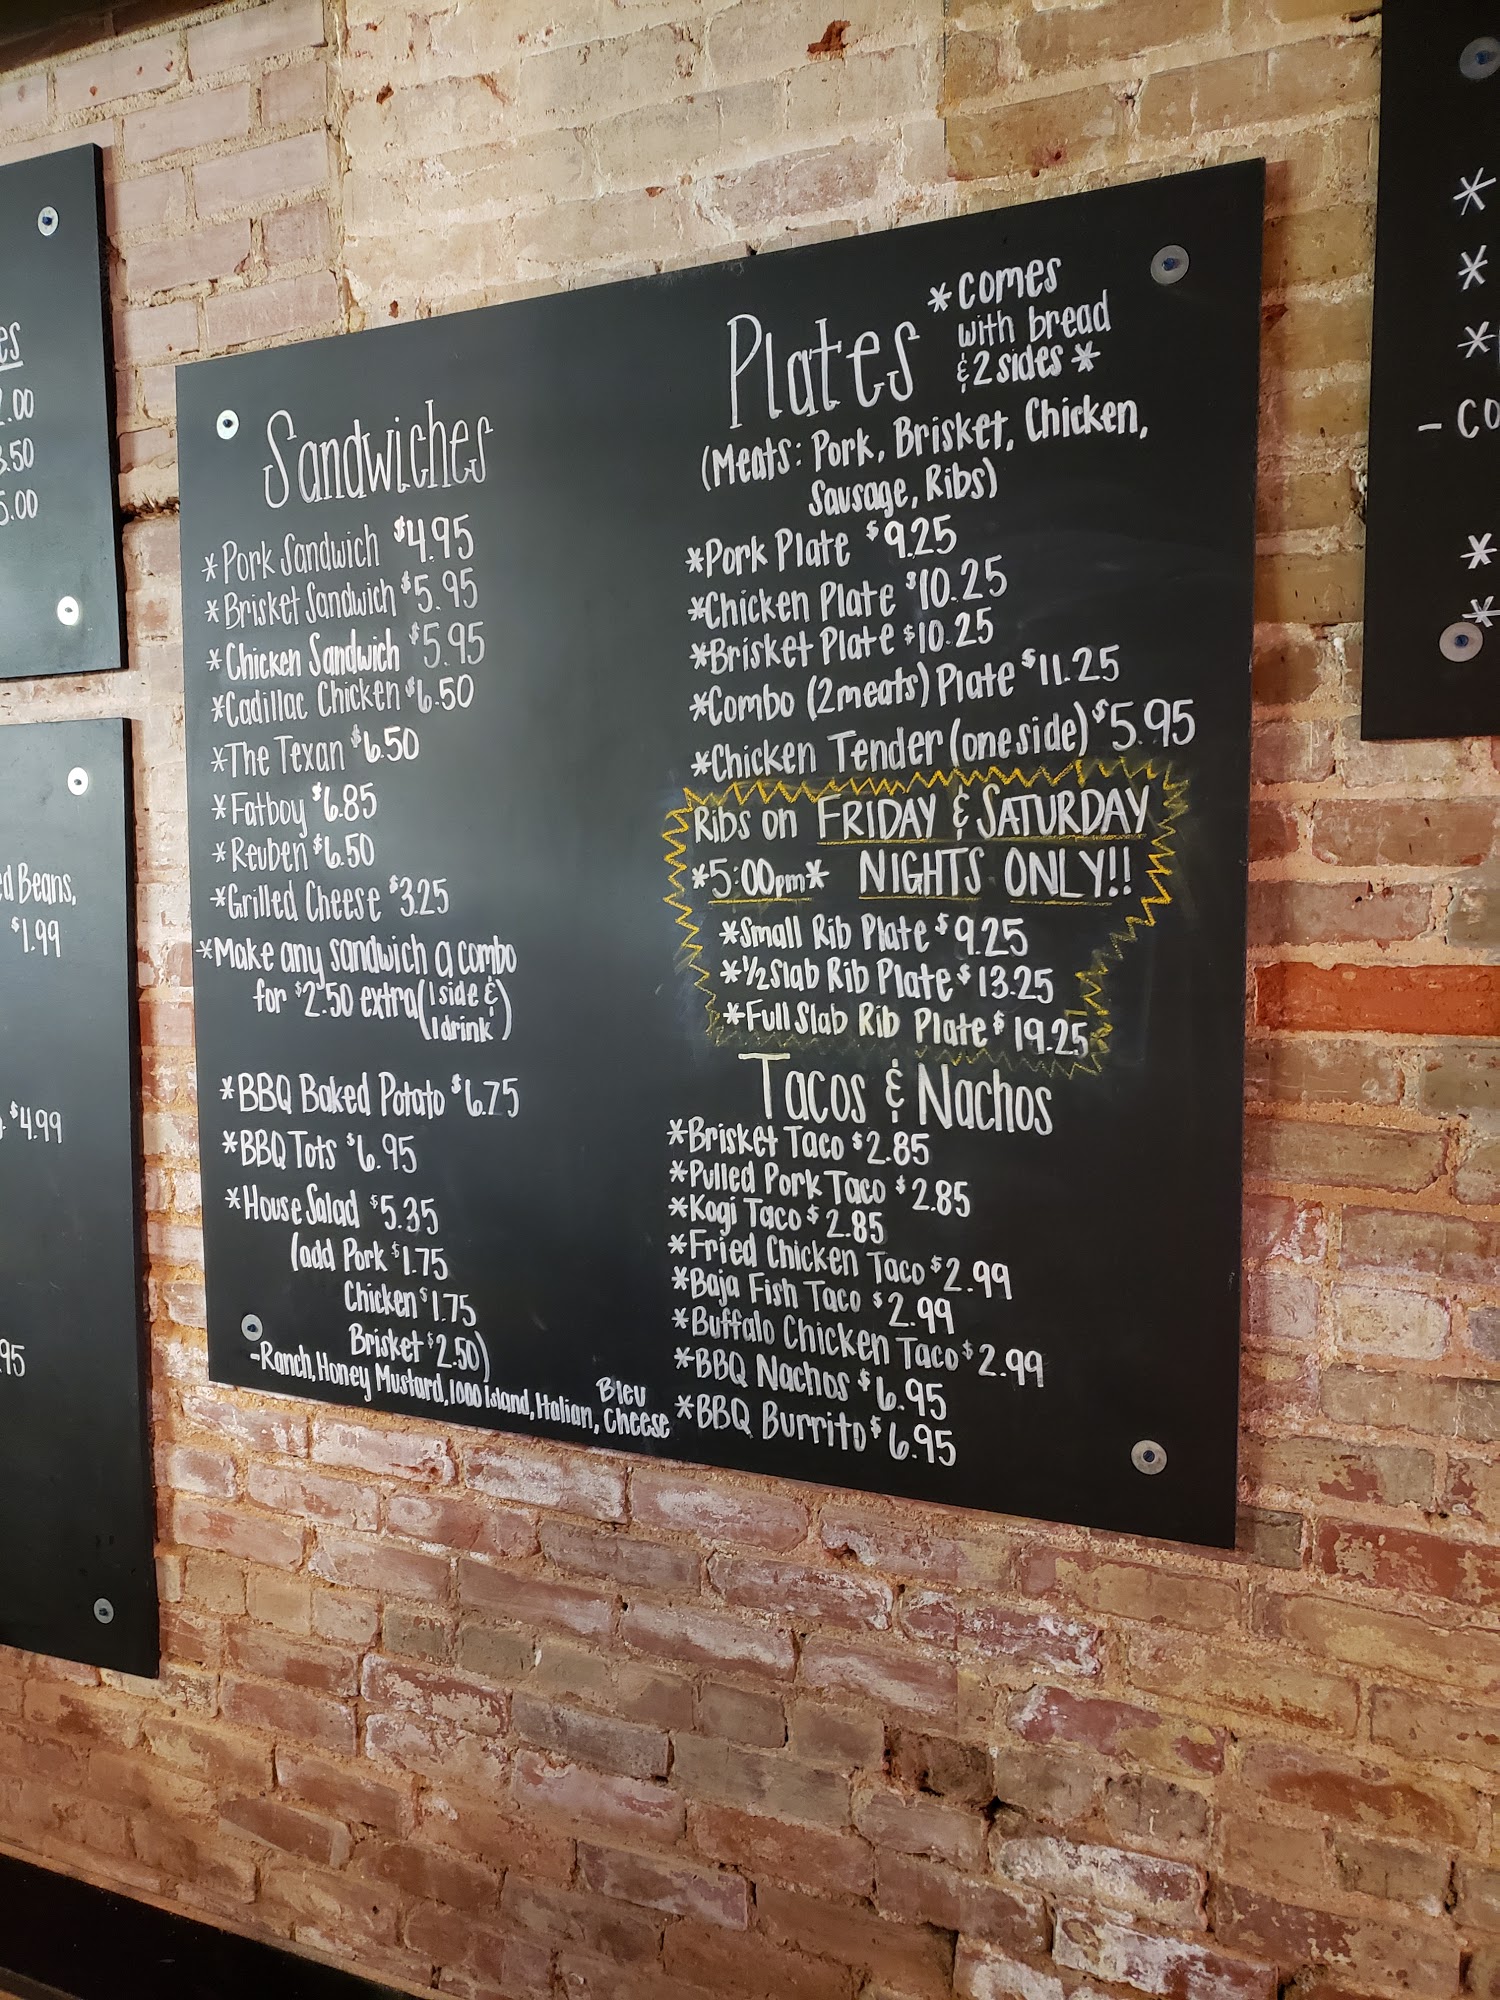 es
2.00
3.50
5.00
ed Beans,
$1.99
$4.99
.95
Sandwiches
*Pork Sandwich $4.95
*Brisket Sandwich $5.95
*Chicken Sandwich $5.95
*Cadillac Chicken $6.50
*The Texan $6.50
*Fatboy $6.85
*Reuben $6.50
*Grilled Cheese $3.25
*Make any sandwich a combo
for $2.50 extra (1 side &
1 drink)
*BBQ Baked Potato $6.75
*BBQ Tots $6.95
*House Salad $5.35
(add Pork $1.75
Chicken $1.75
Brisket $2.50)
-Ranch, Honey Mustard, 1000 Island, Italian, Bleu Cheese
Plates
*comes
with bread
& 2 sides *
(Meats: Pork, Brisket, Chicken,
Sausage, Ribs)
*Pork Plate $9.25
*Chicken Plate $10.25
*Brisket Plate $10.25
*Combo (2 meats) Plate $11.25
*Chicken Tender (one side) $5.95
Ribs on FRIDAY & SATURDAY
*5:00pm* NIGHTS ONLY!!
*Small Rib Plate $9.25
*1/2 Slab Rib Plate $13.25
*Full Slab Rib Plate $19.25
Tacos & Nachos
*Brisket Taco $2.85
*Pulled Pork Taco $2.85
*Kogi Taco $2.85
*Fried Chicken Taco $2.99
*Baja Fish Taco $2.99
*Buffalo Chicken Taco $2.99
*BBQ Nachos $6.95
*BBQ Burrito $6.95
*
*
*
- CO
*
*